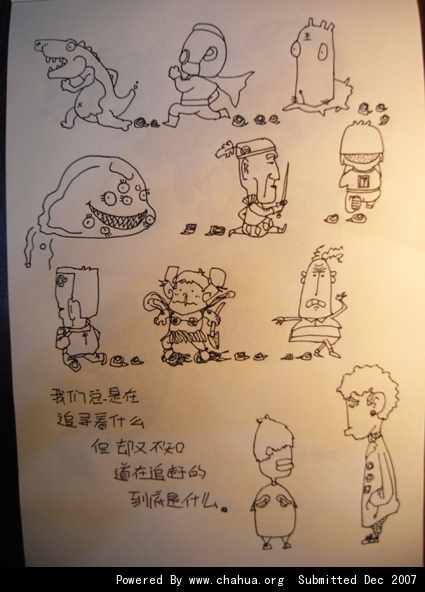 我们总是在
追寻着什么
但却又不知
道在追赶的
到底是什么。
王
Powered By www.chahua.org Submitted Dec 2007